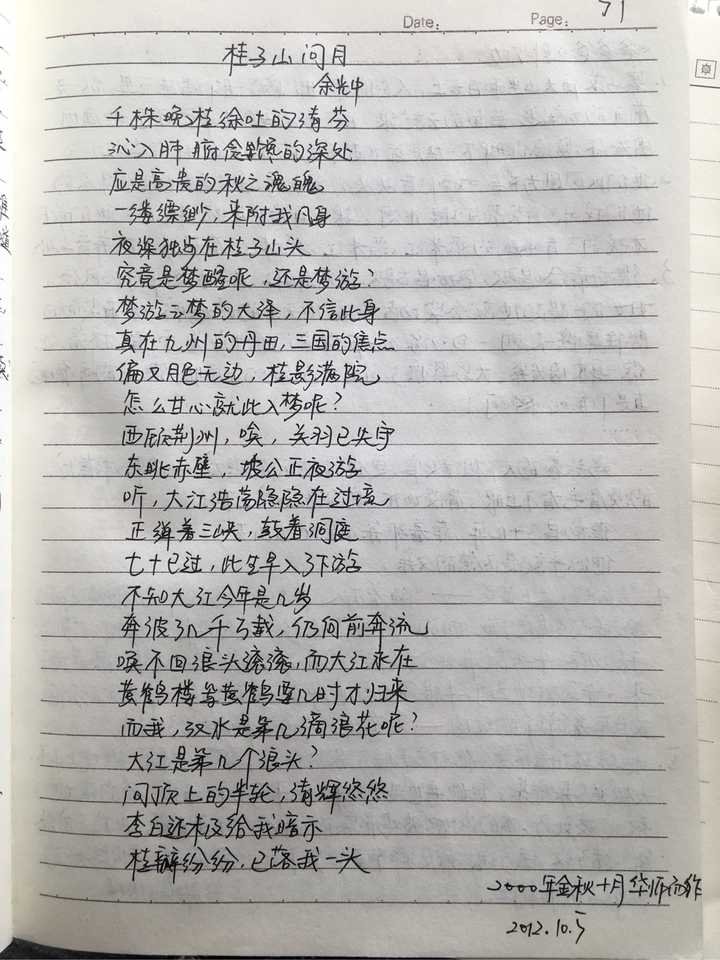 Date:
Page:
71
桂子山问月
余光中
千株晚桂徐吐的清芬
沁入肺腑贪馋的深处
应是高贵的秋之魂魄
一缕缥缈，来附我凡身
夜深独步在桂子山头
究竟是梦醒呢，还是梦游？
梦游云梦的大泽，不信此身
真在九州的丹田，三国的焦点
偏又月色无边，桂影满院
怎么甘心就此入梦呢？
西顾荆州，唉，关羽已失守
东眺赤壁，坡公正夜游
听，大江浩荡隐隐在过境
正弹着三峡，鼓着洞庭
七十已过，此生早入了下游
不知大江今年是几岁
奔波了几千万载，仍向前奔流
唤不回浪头滚滚，而大江永在
黄鹤楼等黄鹤要几时才归来
而我，汉水是第几滴浪花呢？
大江是第几个浪头？
问顶上的半轮，清辉悠悠
李白还未及给我暗示
桂瓣纷纷，已落我一头
2000年金秋十月华师而作
2012.10.5